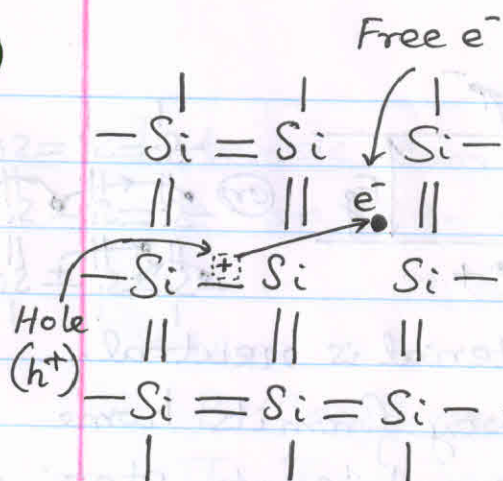 Free e⁻
-Si = Si Si-
|| || e⁻ ||
-Si + = Si Si-
Hole
(h⁺)
|| || ||
-Si = Si = Si-